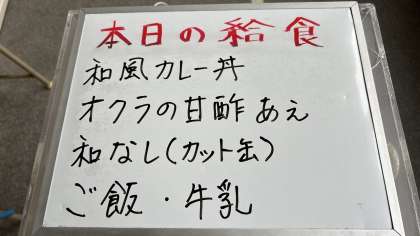 本日の給食
和風カレー丼
オクラの甘酢あえ
和なし(カット缶)
ご飯・牛乳